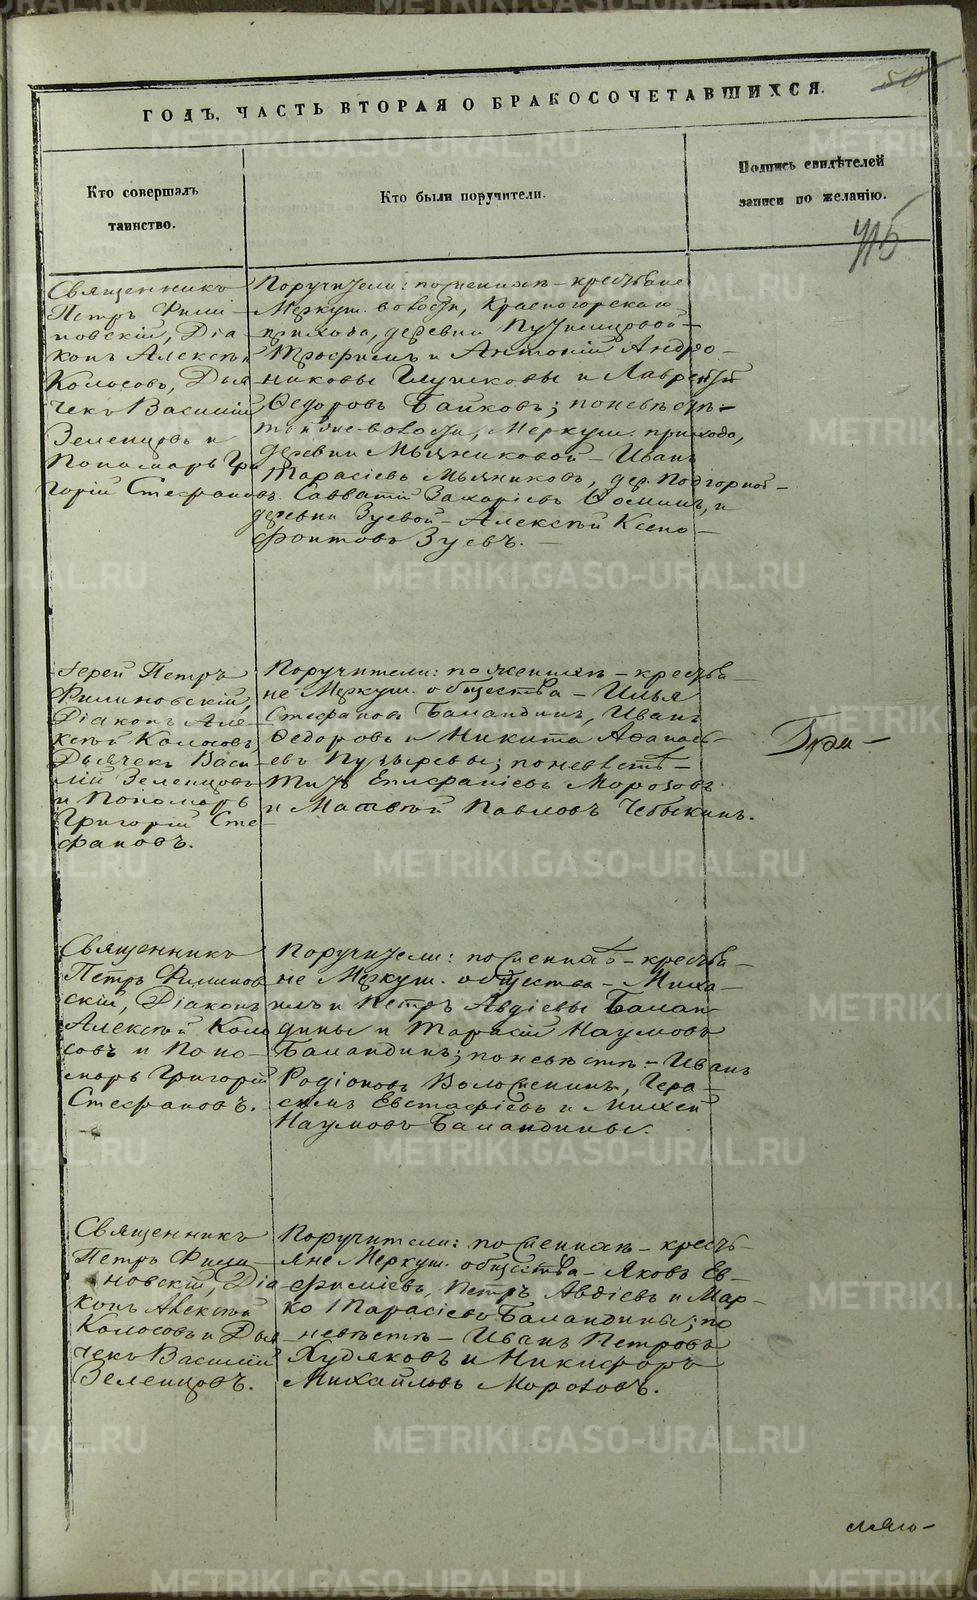 50
ГОДЪ, ЧАСТЬ ВТОРАЯ О БРАКОСОЧЕТАВШИХСЯ.
Кто совершалъ
таинство.
Кто были поручители.
Подпись свидѣтелей
записи по желанію.
Священникъ
Петръ Фили-
повскій, Діа
конъ Алексѣй
Колосовъ, Дья
чекъ Василій
Зеленцовъ и
Пономарь Гри
горій Стефановъ.
Поручители: по женихѣ - крестьяне
Меркуш. волости, Красногорскаго
прихода, деревни
Трофимъ и Антоній Андро-
никовы Глушковы и Лаврентій
Ѳедоровъ Байковъ; по невѣстѣ -
той же волости, Меркуш. прихода,
деревни Мызниковой - Иванъ
Тарасіевъ Мызниковъ, дер. Подгорной -
Савватій Захаріевъ Ѳоминъ, и
деревни Зуевой - Алексѣй Ксено-
фонтовъ Зуевъ. -
Іерей Петръ
Филиповскій,
Діаконъ Але-
ксѣй Колосовъ,
Дьячекъ Васи-
лій Зеленцовъ
и Пономарь
Григорій Сте-
фановъ.
Поручители: по женихѣ - крестья-
не Меркуш. общества - Илья
Стефановъ Баландинъ, Иванъ
Ѳедоровъ и Никита Аѳанась-
евъ Пузыревы; по невѣстѣ -
Титъ Епифаніевъ Морозовъ
и Матвѣй Павловъ Чебыкинъ.
Священникъ
Петръ Филипов
скій, Діаконъ
Алексѣй Коло
совъ и Поно-
марь Григорій
Стефановъ.
Поручители: по женихѣ - крестья-
не Меркуш. общества - Миха-
илъ и Петръ Авдіевы Балан-
дины и Тарасій Наумовъ
Баландинъ; по невѣстѣ - Иванъ
Родіоновъ Воложенинъ, Гера-
симъ Евстафіевъ и Михей
Наумовъ Баландины.
Священникъ
Петръ Фили-
повскій, Діа
конъ Алексѣй
Колосовъ и Дья
чекъ Василій
Зеленцовъ.
Поручители: по женихѣ - кресть-
яне Меркуш. общества - Яковъ Ев-
фиміевъ, Петръ Авдіевъ и Мар-
ко Тарасіевъ Баландины; по
невѣстѣ - Иванъ Петровъ
Худяковъ и Никифоръ
Михайловъ Морозовъ.
METRIKI.GASO-URAL.RU